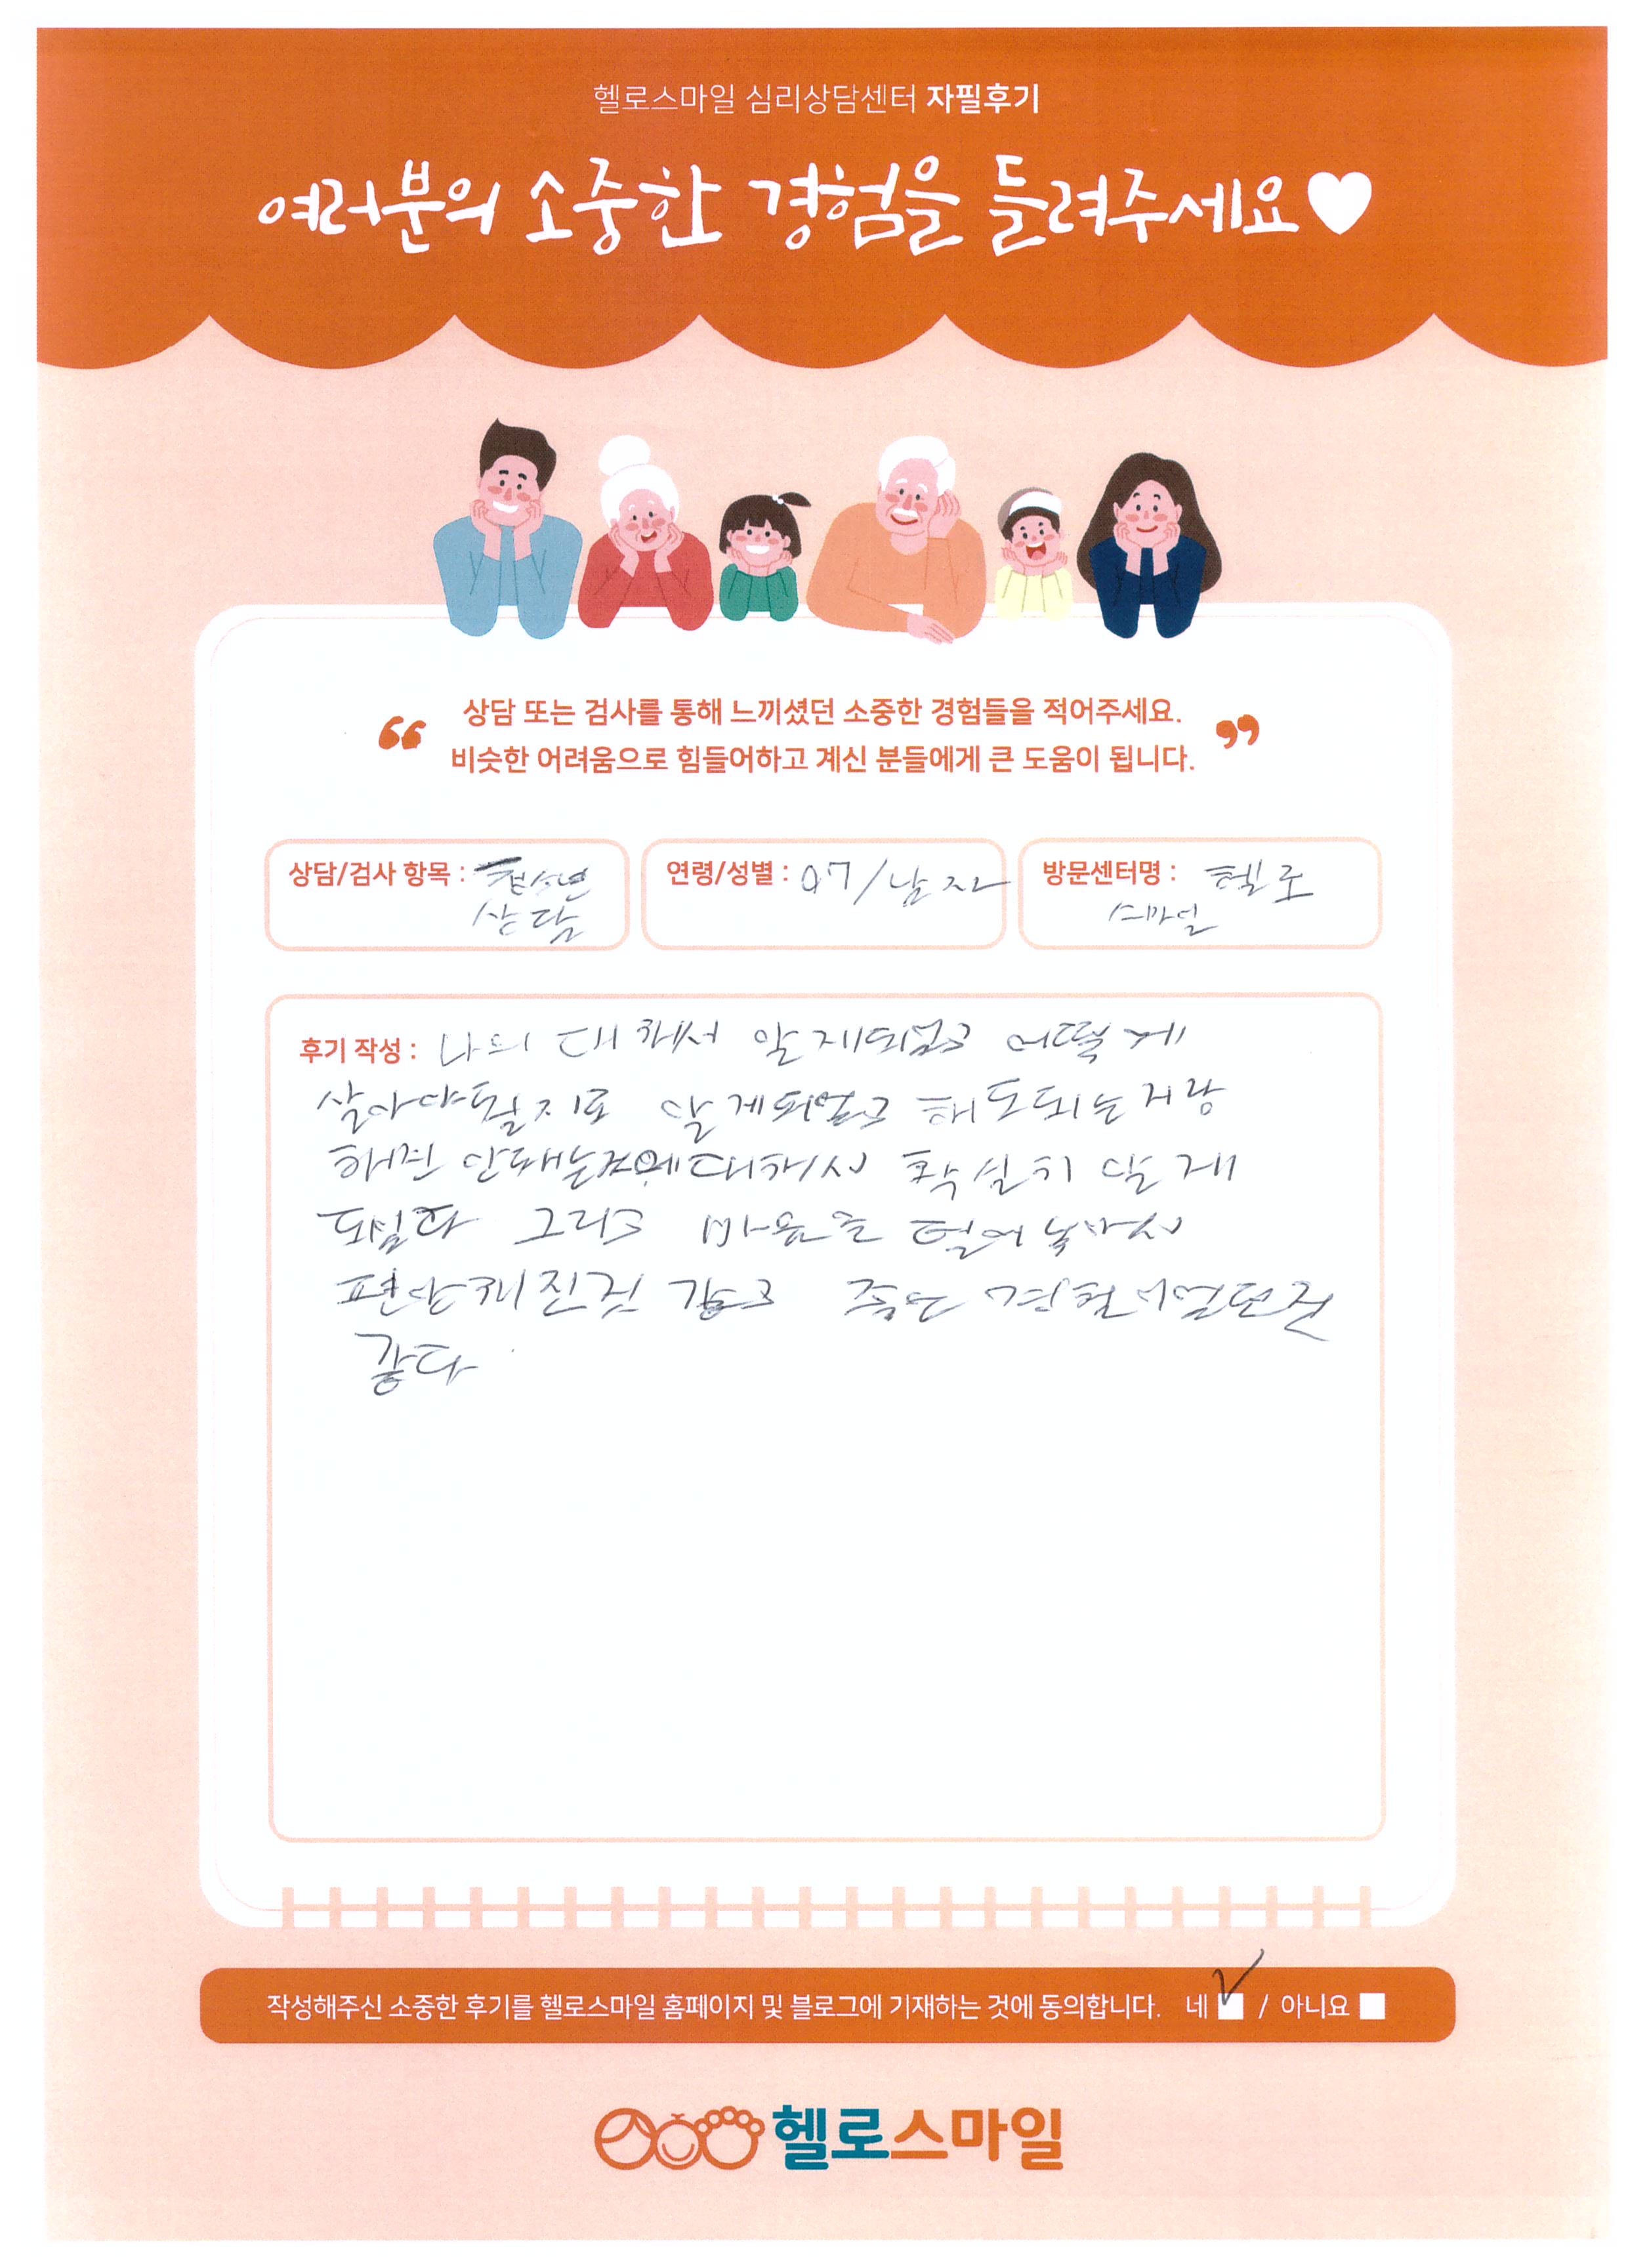 헬로스마일 심리상담센터 자필후기
여러분의 소중한 경험을 들려주세요♥
“ 상담 또는 검사를 통해 느끼셨던 소중한 경험들을 적어주세요.
비슷한 어려움으로 힘들어하고 계신 분들에게 큰 도움이 됩니다. ”
상담/검사 항목 : 청소년
상담
연령/성별 : 07/남자
방문센터명 : 헬로
스마일
후기 작성 : 나의 대해서 알게되었고 어떻게
살아야될지도 알게되었고 해도되는거랑
하면 안돼는것에대해서 확실히 알게
되었다 그리고 마음을 열어놓아서
편안해진것 같고 좋은 경험이었던것
같다
작성해주신 소중한 후기를 헬로스마일 홈페이지 및 블로그에 기재하는 것에 동의합니다. 네 / 아니요
헬로스마일